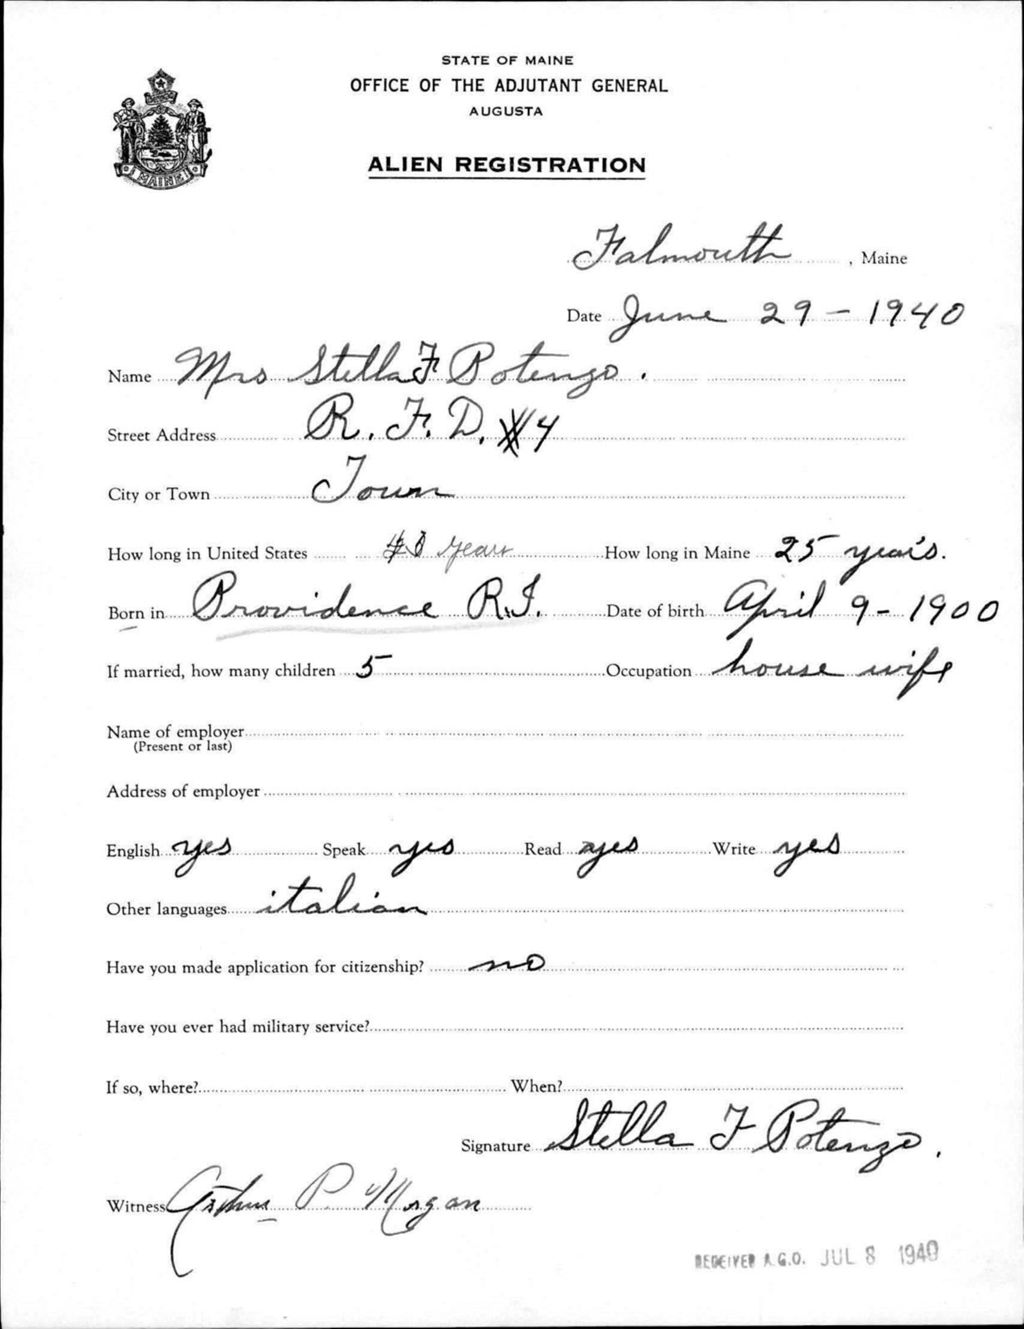 STATE OF MAINE
OFFICE OF THE ADJUTANT GENERAL
AUGUSTA
ALIEN REGISTRATION
MAINE
Falmouth, Maine
Date June 29 - 1940
Name Mrs Stella F Potenzo.
Street Address R. F. D. #4
City or Town Town
How long in United States years How long in Maine 25 years.
Born in Providence R.I. Date of birth April 9 - 1900
If married, how many children 5 Occupation house wife
Name of employer
(Present or last)
Address of employer
English yes Speak yes Read yes Write yes
Other languages italian
Have you made application for citizenship? no
Have you ever had military service?
If so, where? When?
Signature Stella F Potenzo.
Witness Arthur P. Morgan
RECEIVED A.G.O. JUL 8 1940